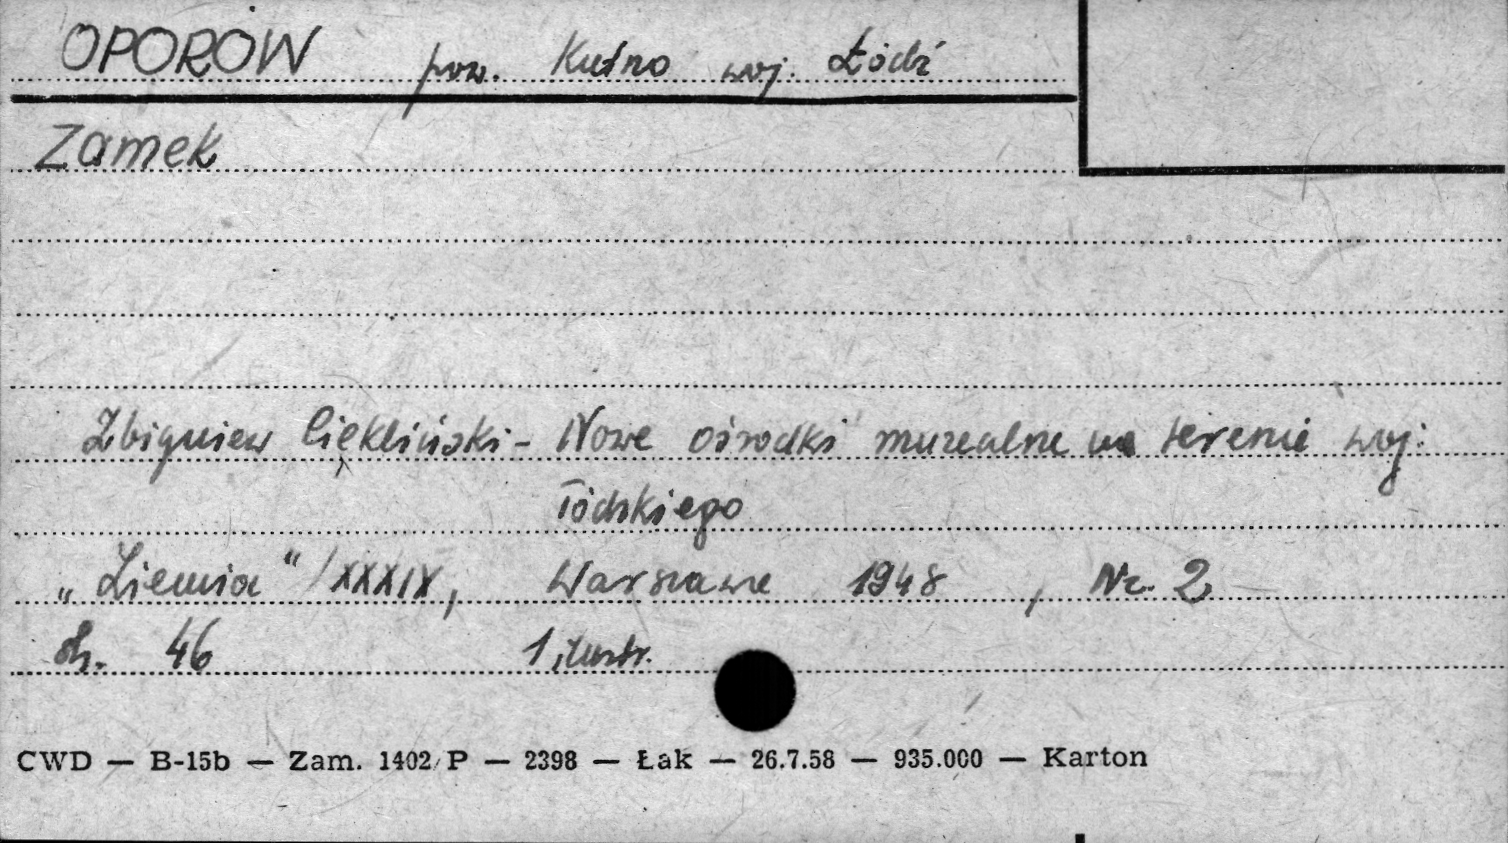 OPORÓW pow. Kutno woj. Łódź
Zamek
Zbigniew Ciekliński - Nowe ośrodki muzealne na terenie woj.
łódzkiego
„Ziemia" / XXXIX, Warszawa 1948, Nr. 2
str. 46 1 ilustr.
CWD — B-15b — Zam. 1402/P — 2398 — Łak — 26.7.58 — 935.000 — Karton